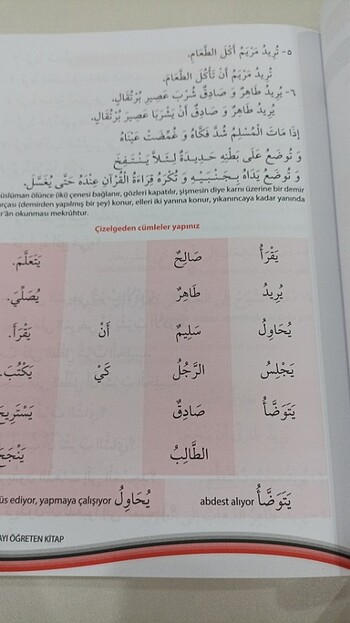 ٥- تُرِيدُ مَرْيَمُ أَكْلَ الطَّعَامِ.
تُرِيدُ مَرْيَمُ أَنْ تَأْكُلَ الطَّعَامَ.
٦- يُرِيدُ طَاهِرٌ وَ صَادِقٌ شُرْبَ عَصِيرِ بُرْتُقَالٍ.
يُرِيدُ طَاهِرٌ وَ صَادِقٌ أَنْ يَشْرَبَا عَصِيرَ بُرْتُقَالٍ.
إِذَا مَاتَ الْمُسْلِمُ شُدَّ فَكَّاهُ وَ غُمِّضَتْ عَيْنَاهُ
وَ تُوضَعُ عَلَى بَطْنِهِ حَدِيدَةٌ لِئَلَّا يَنْتَفِخَ
وَ تُوضَعُ يَدَاهُ بِجَنْبَيْهِ وَ تُكْرَهُ قِرَاءَةُ الْقُرْآنِ عِنْدَهُ حَتَّى يُغَسَّلَ.
üslüman ölünce (iki) çenesi bağlanır, gözleri kapatılır, şişmesin diye karnı üzerine bir demir
rçası (demirden yapılmış bir şey) konur, elleri iki yanına konur, yıkanıncaya kadar yanında
r'ân okunması mekrûhtur.
Çizelgeden cümleler yapınız
يَقْرَأُ صَالِحٌ يَتَعَلَّمَ.
يُرِيدُ طَاهِرٌ يُصَلِّيَ.
يُحَاوِلُ سَلِيمٌ أَنْ يَقْرَأَ.
يَجْلِسُ الرَّجُلُ كَيْ يَكْتُبَ.
يَتَوَضَّأُ صَادِقٌ يَسْتَرِيحَ
الطَّالِبُ يَنْجَحَ
يَتَوَضَّأُ abdest alıyor يُحَاوِلُ üs ediyor, yapmaya çalışıyor
AYI ÖĞRETEN KİTAP